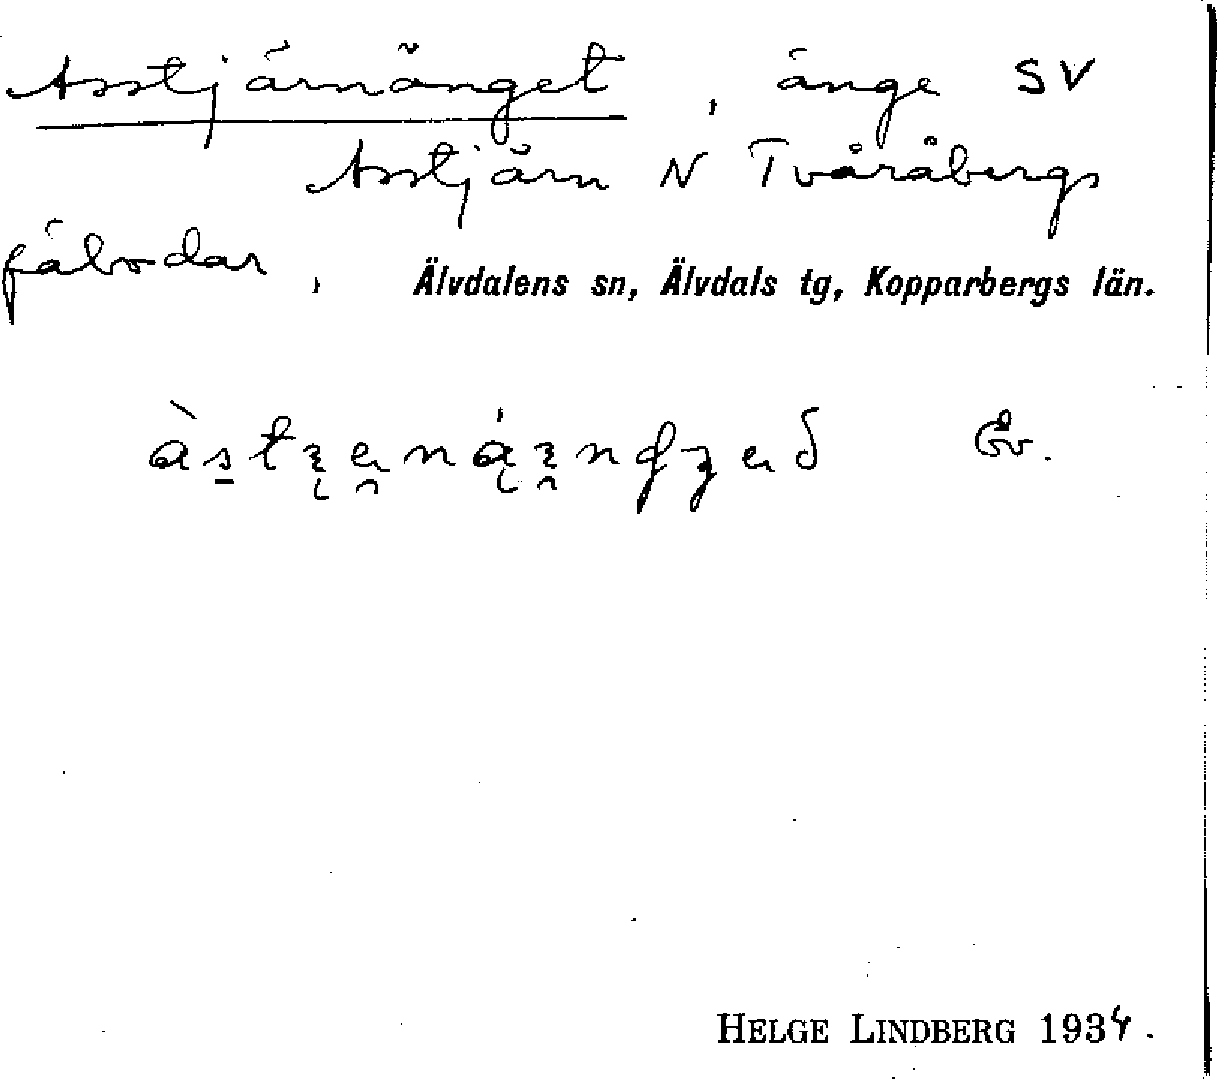 Asstjärnänget, änge SV
Asstjärn N Tvåråbergs
fäbodar, Älvdalens sn, Älvdals tg, Kopparbergs län.
Öv.
HELGE LINDBERG 1934.